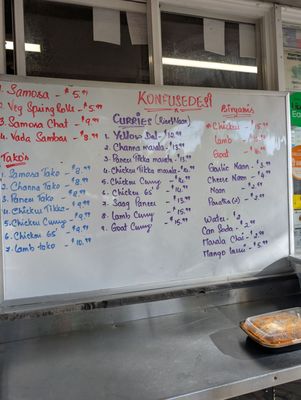 1. Samosa - $5.99
2. Veg Spring Rolls - $5.99
3. Samosa Chat - $9.99
4. Vada Sambar - $8.99
Tako's
1. Samosa Tako - $8.99
2. Channa Tako - $8.99
3. Paneer Tako - $9.99
4. Chicken Tikka - $9.99
5. Chicken Curry - $9.99
6. Chicken 65 - $9.99
7. Lamb Tako - $10.99
KONFUSEDESI
CURRIES (Rice/Naan)
1. Yellow Dal - $12.99
2. Channa masala - $13.99
3. Paneer Tikka masala - $15.99
4. Chicken Tikka masala - $16.99
5. Chicken Curry - $14.99
6. Chicken 65 - $14.99
7. Saag Paneer - $13.99
8. Lamb Curry - $15.99
9. Goat Curry - $15.99
Biryanis
Chicken - $15.99
Lamb
Goat - $16.99
Garlic Naan - $3.99
Cheese Naan - $4.99
Naan - $2.99
Paratha (2) - $2.99
Water - $2
Can Soda - $2
Masala Chai - $2.99
Mango Lassi - $5.99